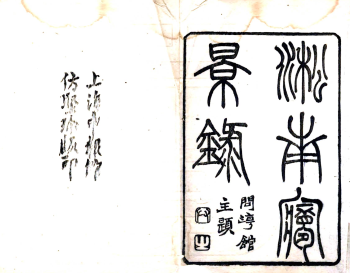 淞南夢
景錄
問潮館
主題
上海申報館
仿聚珍版印